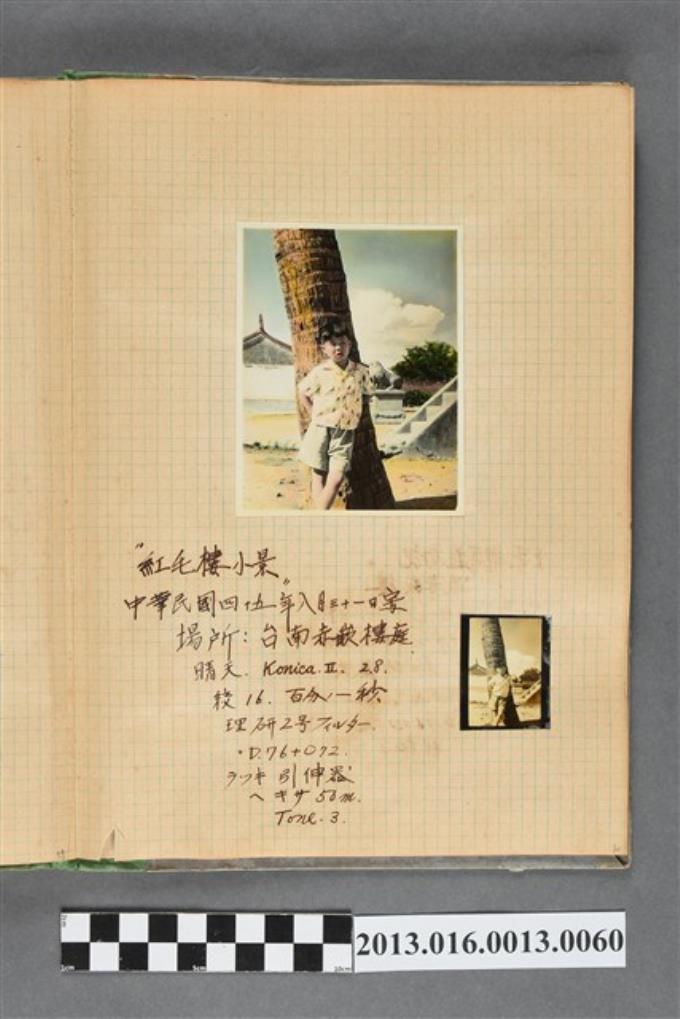 "紅毛樓小景"
中華民國四十五年八月三十一日寫
場所：台南赤嵌樓庭
晴天. Konica. II. 2.8.
絞 16. 百分ノ一秒
理研2号フィルター.
・D.76+072.
ラッキ引伸器
ヘキサ 50m.
Tone. 3.
2013.016.0013.0060